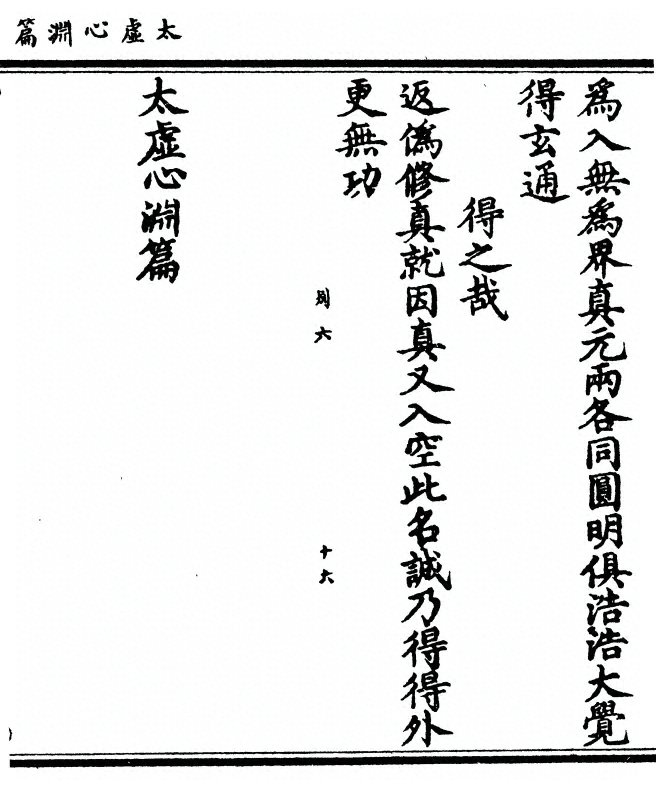 太虛心淵篇
為入無為界真元兩各同圓明俱浩浩大覺
得玄通
得之哉
返偽修真就因真又入空此名誠乃得得外
更無功
別六
十六
太虛心淵篇